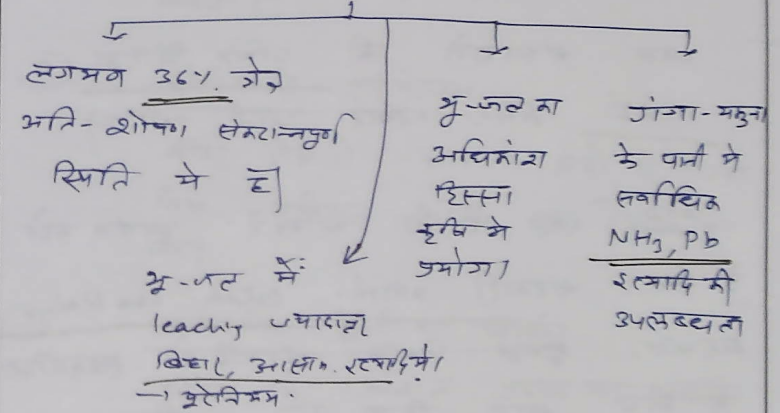 लगभग 36% क्षेत्र
अति-शोषण संकटापूर्ण
स्थिति में है।
भू-जल में
leaching ज्यादातर
बिहार, आसाम इत्यादि में।
→ यूरेनियम.
भू-जल का
अधिकांश
हिस्सा
कृषि में
प्रयोग।
गंगा-यमुना
के पानी में
सर्वाधिक
NH3, Pb
इत्यादि की
उपलब्धता